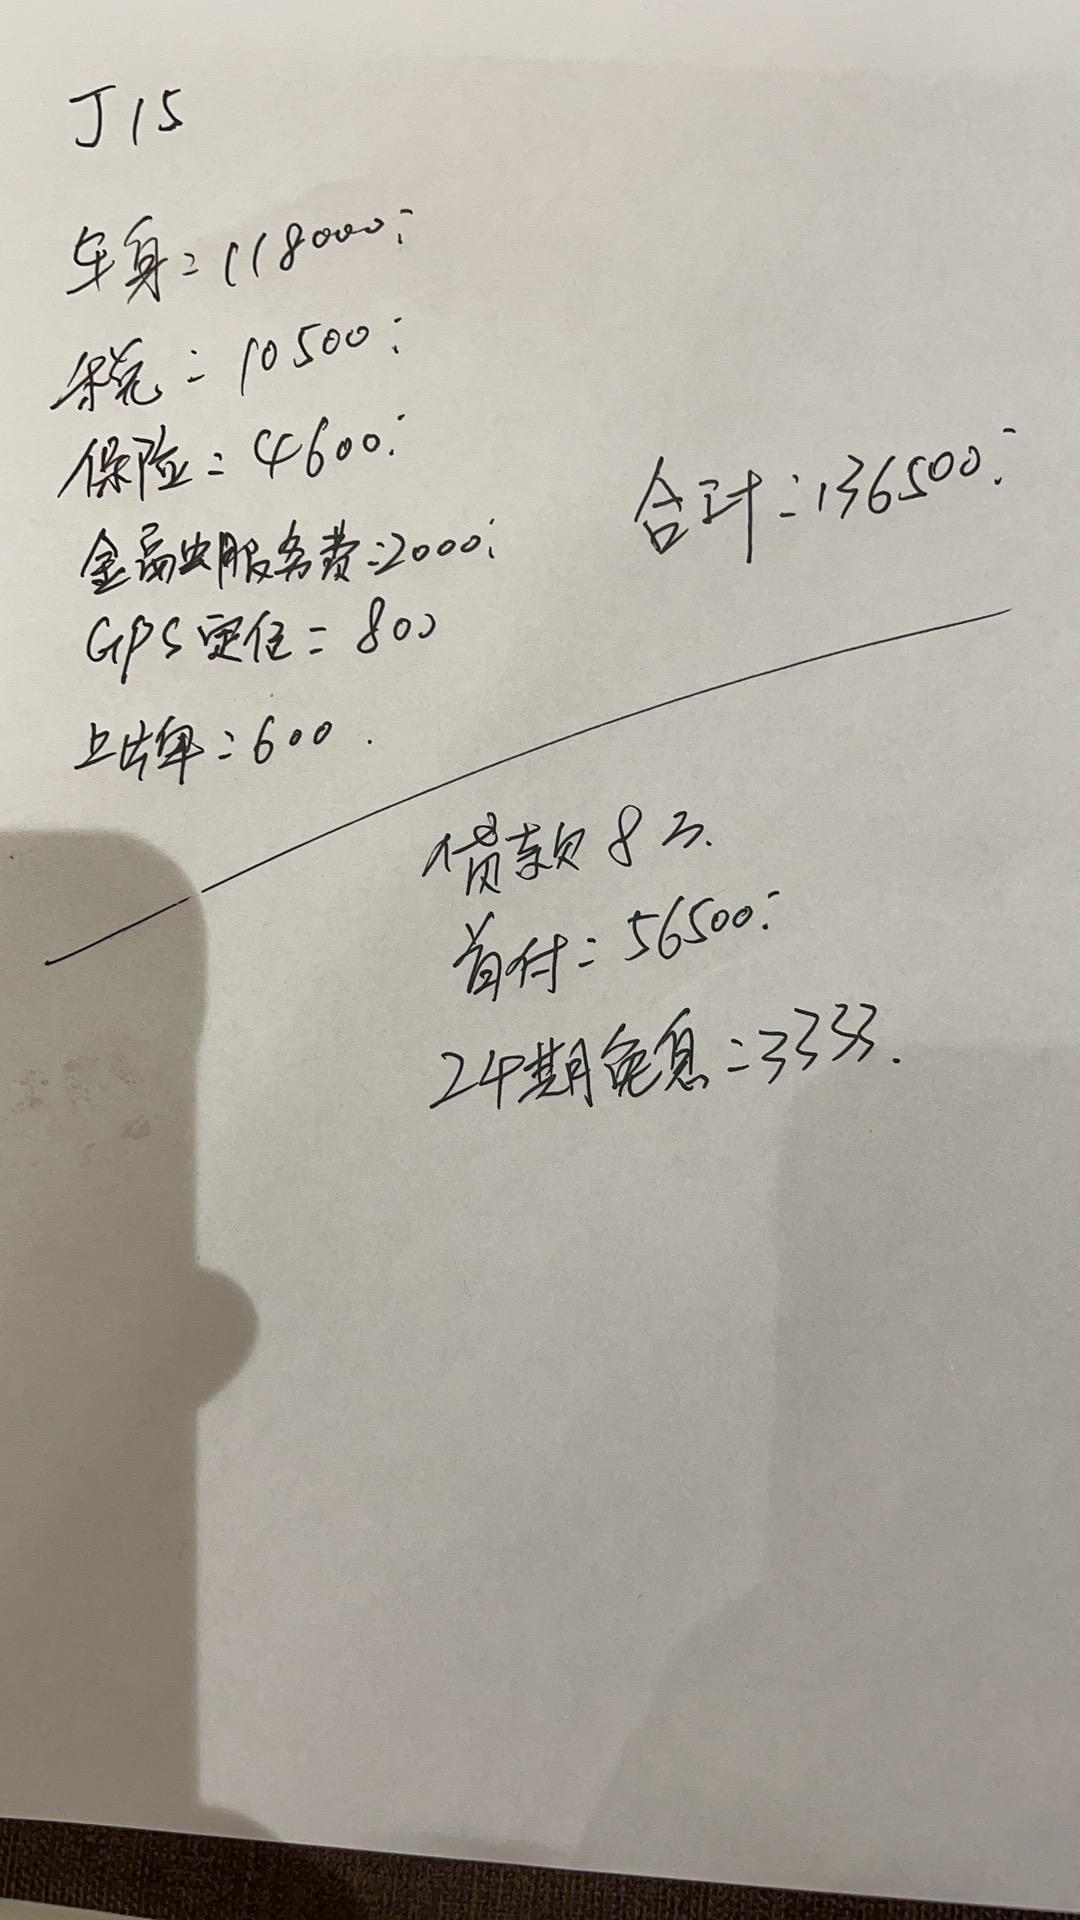 J15
车身=118000.-
税=10500.-
保险=4600.-
金融服务费=2000.-
GPS定位=800
上牌=600.
合计=136500.-
贷款8万.
首付=56500.-
24期免息=3333.